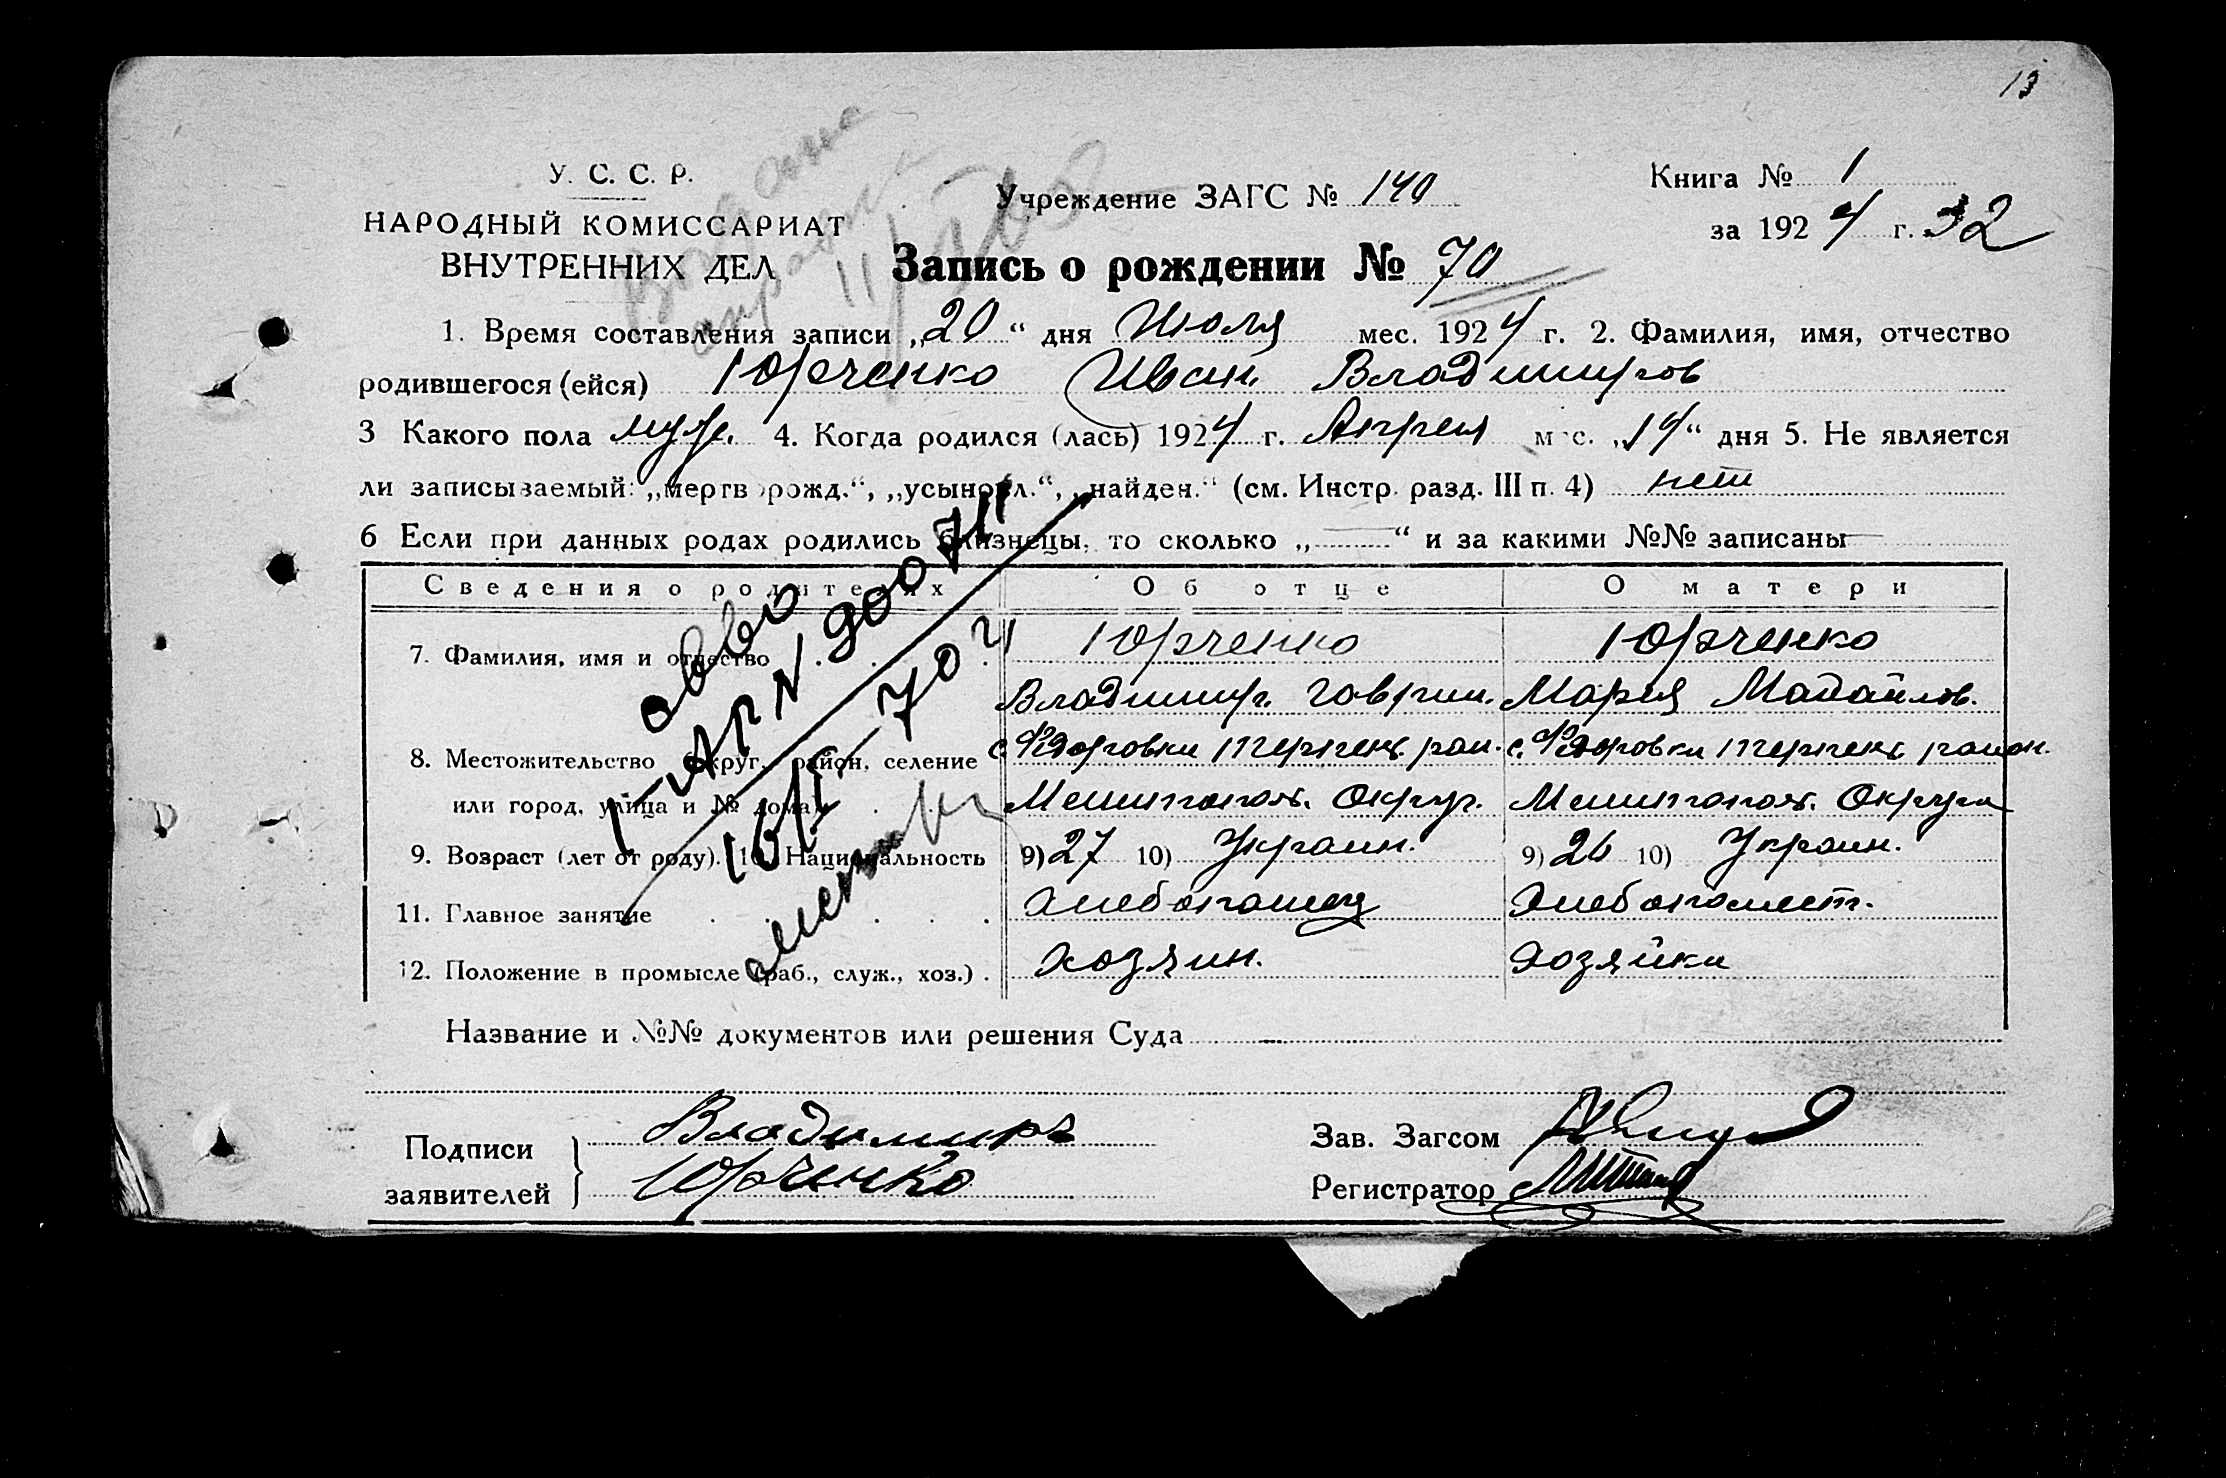 13
У. С. С. Р.
НАРОДНЫЙ КОМИССАРИАТ
ВНУТРЕННИХ ДЕЛ
Учреждение ЗАГС № 140
Книга № 1
за 1924 г. 32
Запись о рождении № 70
1. Время составления записи „20“ дня Июля мес. 1924 г. 2. Фамилия, имя, отчество
родившегося (ейся) Юрченко Иван Владимиров
3 Какого пола муж. 4. Когда родился (лась) 1924 г. Апреля мес. „14“ дня 5. Не является
ли записываемый: „мертворожд.“, „усыновл.“, „найден.“ (см. Инстр. разд. III п. 4) нет
6 Если при данных родах родились близнецы, то сколько „—“ и за какими №№ записаны —
Сведения о родителях Об отце О матери
7. Фамилия, имя и отчество Юрченко Юрченко
Владимир. Гаврил. Мария
8. Местожительство (округ, район, селение с. Фёдоровки Терпен. рай. с. Фёдоровки Терпен. район.
или город, улица и № дома) Мелитопол. Округ. Мелитопол. Округа
9. Возраст (лет от роду). 10. Национальность 9) 27 10) Украин. 9) 26 10) Украин.
11. Главное занятие Хлебопашец Хлебопашест.
12. Положение в промысле (раб., служ., хоз.) Хозяин. Хозяйка
Название и №№ документов или решения Суда —
Подписи заявителей Владимиръ
Юрченко
Зав. Загсом
Регистратор